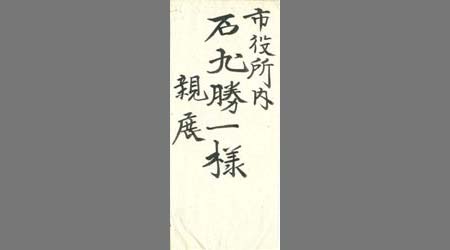 市役所内
石丸勝一様
親展